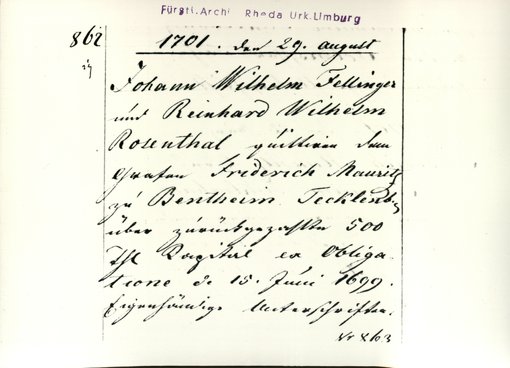 Fürstl. Archi Rheda Urk. Limburg
862
1701. den 29. august
Johann Wilhelm Fellinger
und Reinhard Wilhelm
Rosenthal quittiren dem
Grafen Friderich Mauritz
zu Bentheim Tecklenburg
über zurückgezahlte 500
Thl Capital ex Obliga
tione d. 15. Juni 1699.
Eigenhändige Unterschriften.
Nr 863